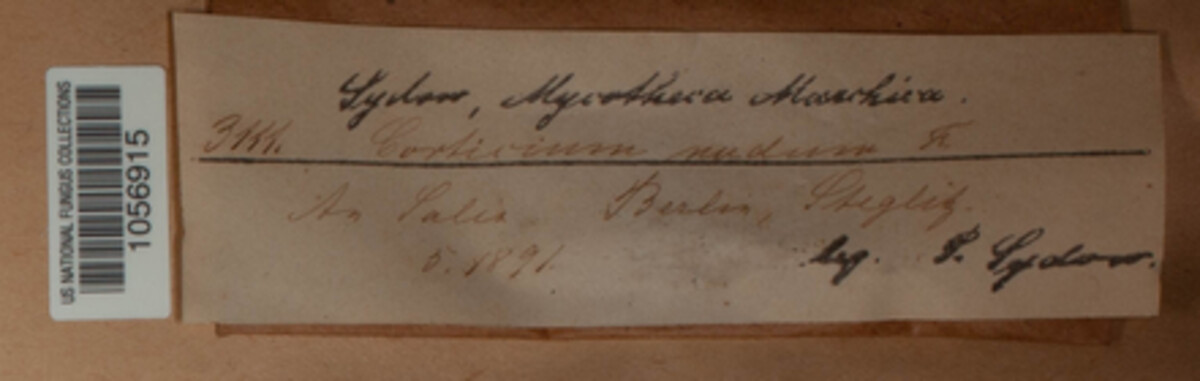 US NATIONAL FUNGUS COLLECTIONS
1056915
Sydow, Mycotheca Marchica.
Corticium nudum Fr
An Salix. Berlin, Steglitz.
5. 1891.
leg. P. Sydow.